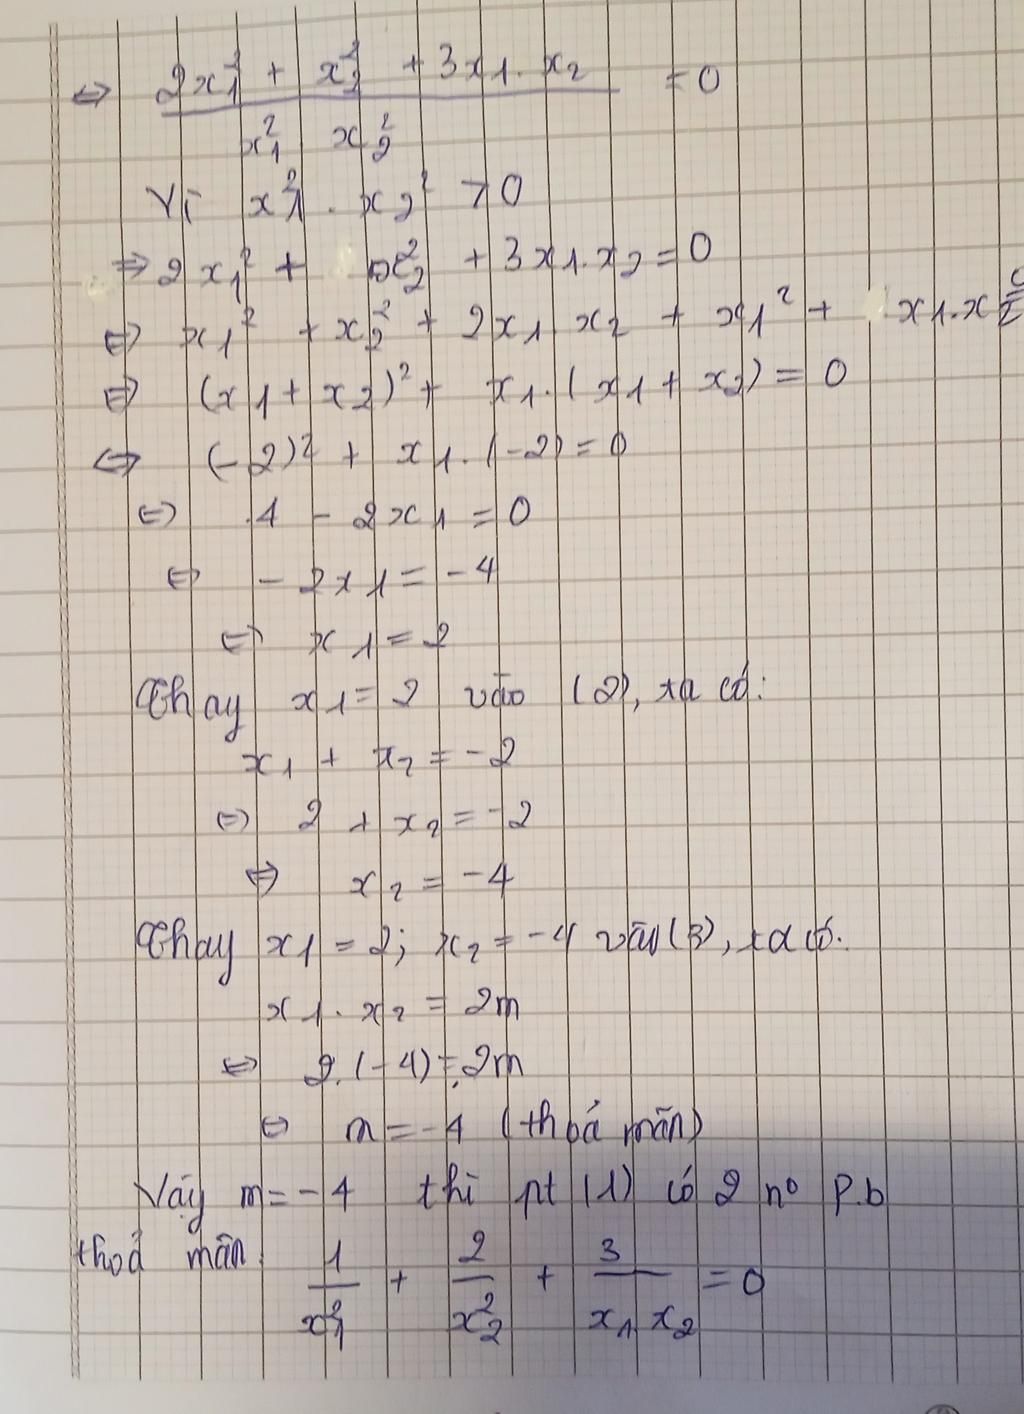 ⇔ (2x₁² + x₂² + 3x₁.x₂)/(x₁² x₂²) = 0
Vì x₁² . x₂² > 0
⇒ 2x₁² + x₂² + 3x₁.x₂ = 0
⇔ x₁² + x₂² + 2x₁ x₂ + x₁² + x₁.x₂ =
⇔ (x₁ + x₂)² + x₁.(x₁ + x₂) = 0
⇔ (-2)² + x₁.(-2) = 0
⇔ 4 - 2x₁ = 0
⇔ - 2x₁ = -4
⇔ x₁ = 2
Thay x₁ = 2 vào (2), ta có:
x₁ + x₂ = -2
⇔ 2 + x₂ = -2
⇔ x₂ = -4
Thay x₁ = 2; x₂ = -4 vào (3), ta có:
x₁ . x₂ = 2m
⇔ 2.(-4) = 2m
⇔ m = -4 (thoả mãn)
Vậy m = -4 thì pt (1) có 2 nº p.b
thoả mãn 1/x₁² + 2/x₂² + 3/(x₁ x₂) = 0